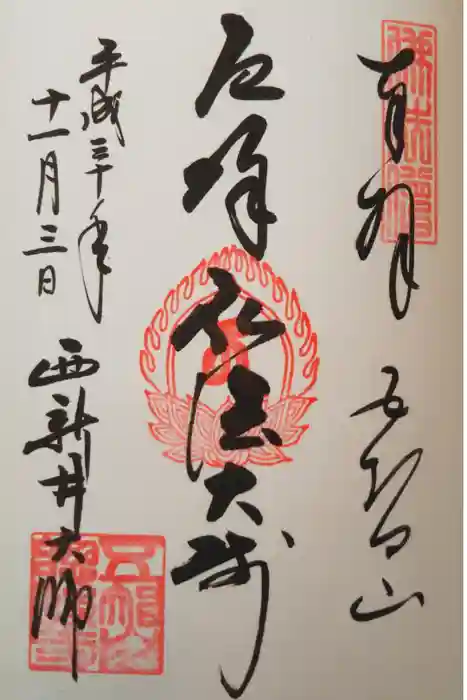 奉拝 五智山
厄除 弘法大師
平成三十年
十一月三日
西新井大師